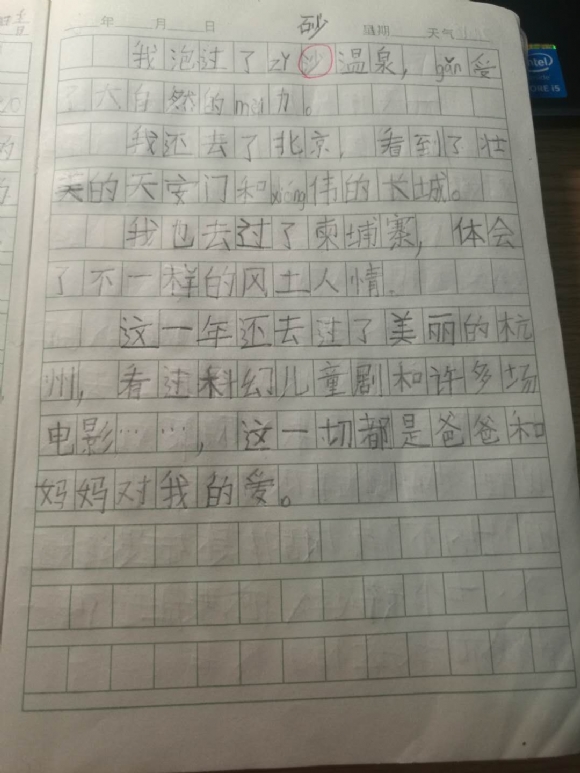 年 月 日 砂 星期 天气
我泡过了zY沙温泉，gǎn受
了大自然的mèi力。
我还去了北京，看到了壮
美的天安门和xióng伟的长城。
我也去过了柬埔寨，体会
了不一样的风土人情.
这一年还去过了美丽的杭
州，看过科幻儿童剧和许多场
电影……，这一切都是爸爸和
妈妈对我的爱。
intel
CORE i5